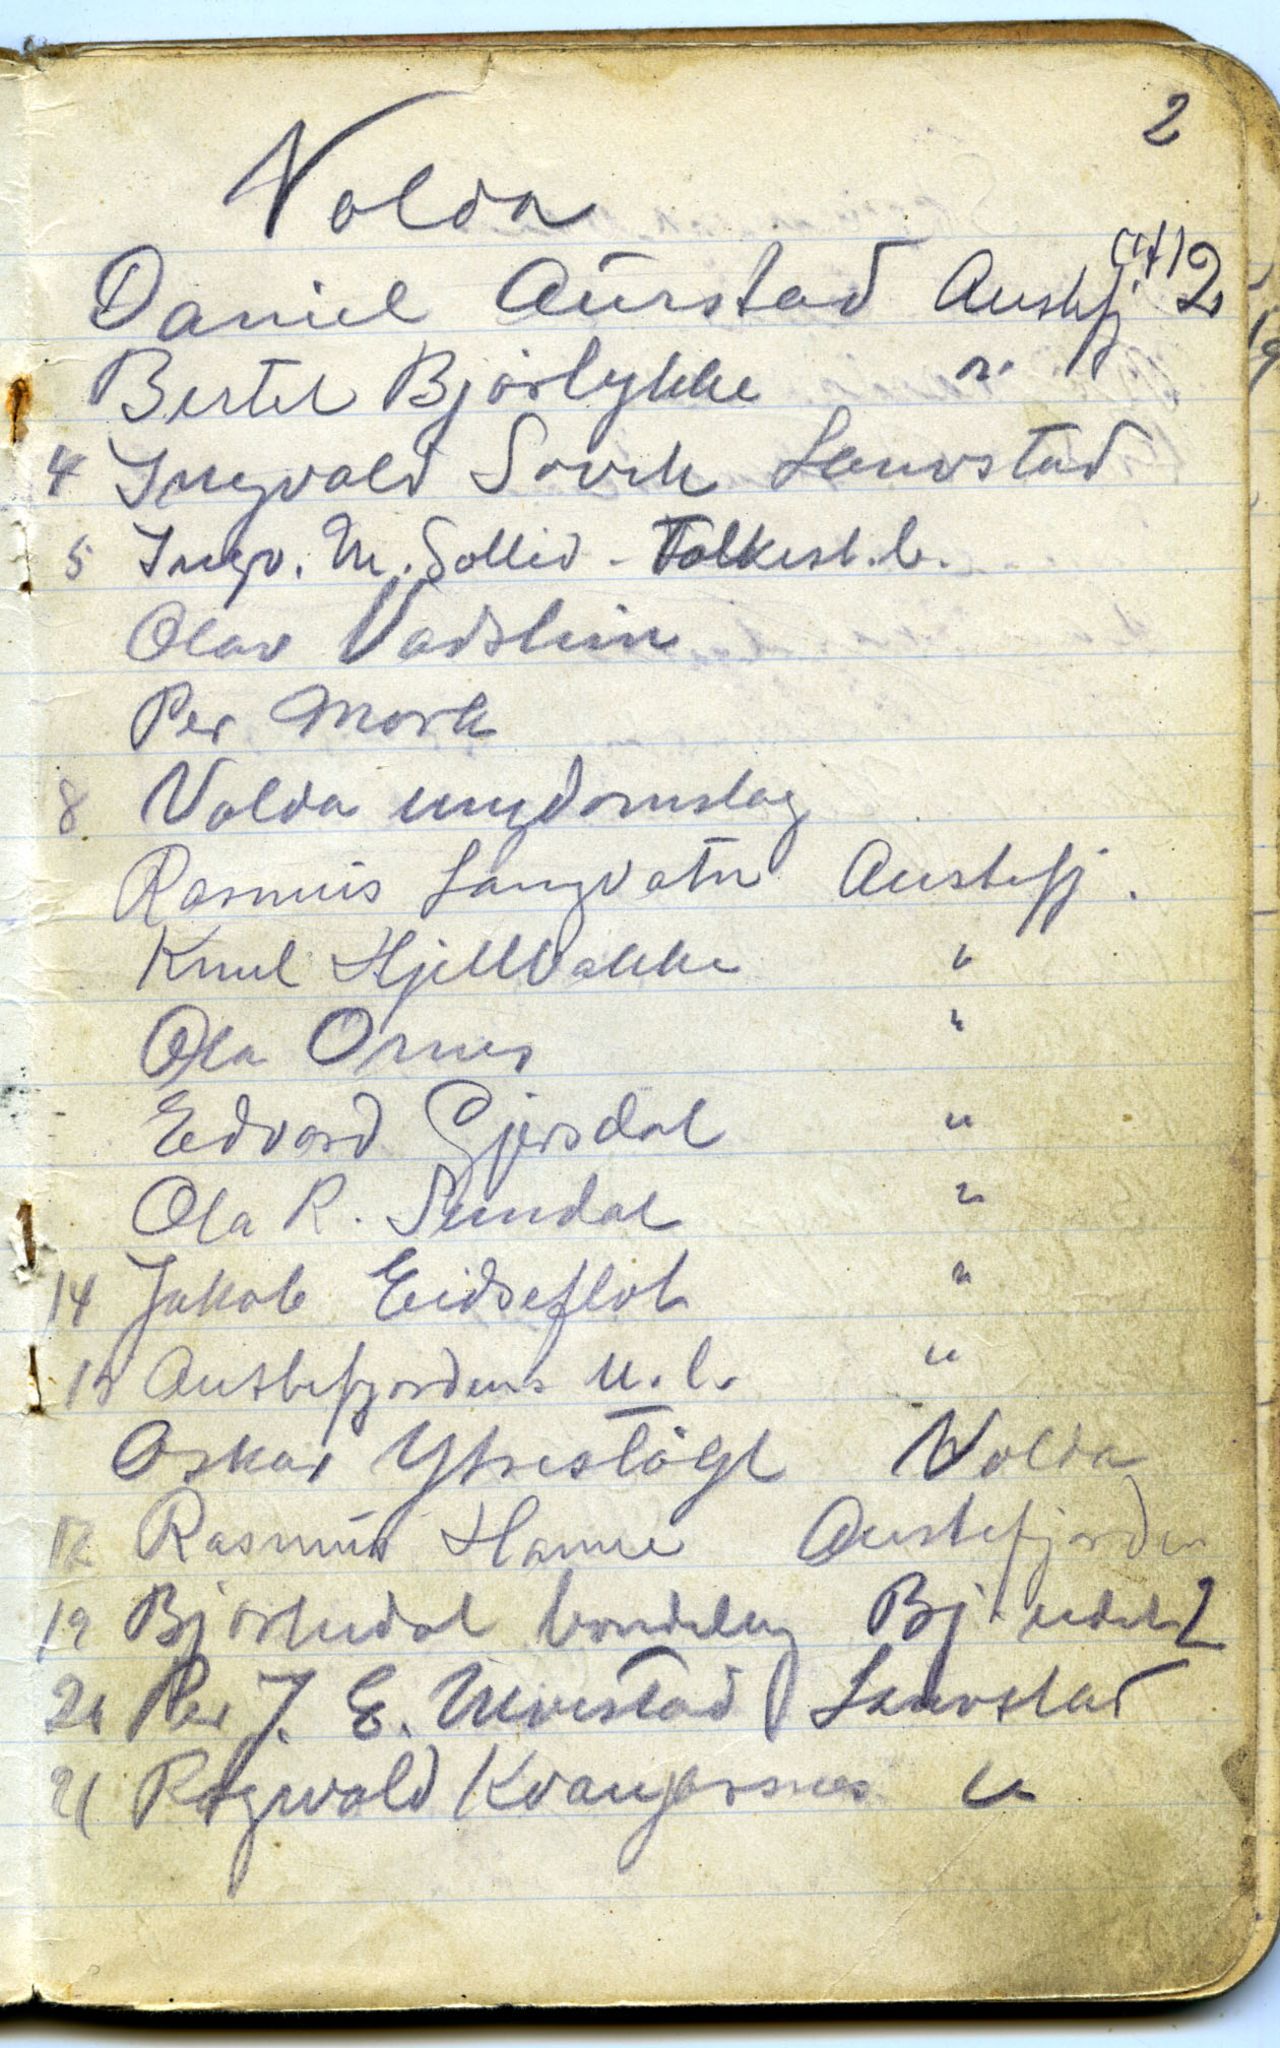 2
Volda
Daniel Aurstad Austefj. 2
Bertel Bjørlykke "
4 Ingvald Sovik Lauvstad
5 Ingv. M. Sollid - Folkest. l.
Olav Vadstein
Per Mork
8 Volda ungdomslag
Rasmus Langvatn Austefj.
Knut Hjellbakke "
Ola Ornes "
Edvard Gjersdal "
Ola R. Sundal "
14 Jakob Eidseflot "
15 Austefjordens u. l. "
Oskar Ytrestöyl Volda
Rasmus Hamre Austefjorden
19 Bjørkedal bondelag Bj.
Per J. E. Ulvestad Lauvstad
21 Ragnvald Kvangarsnes "